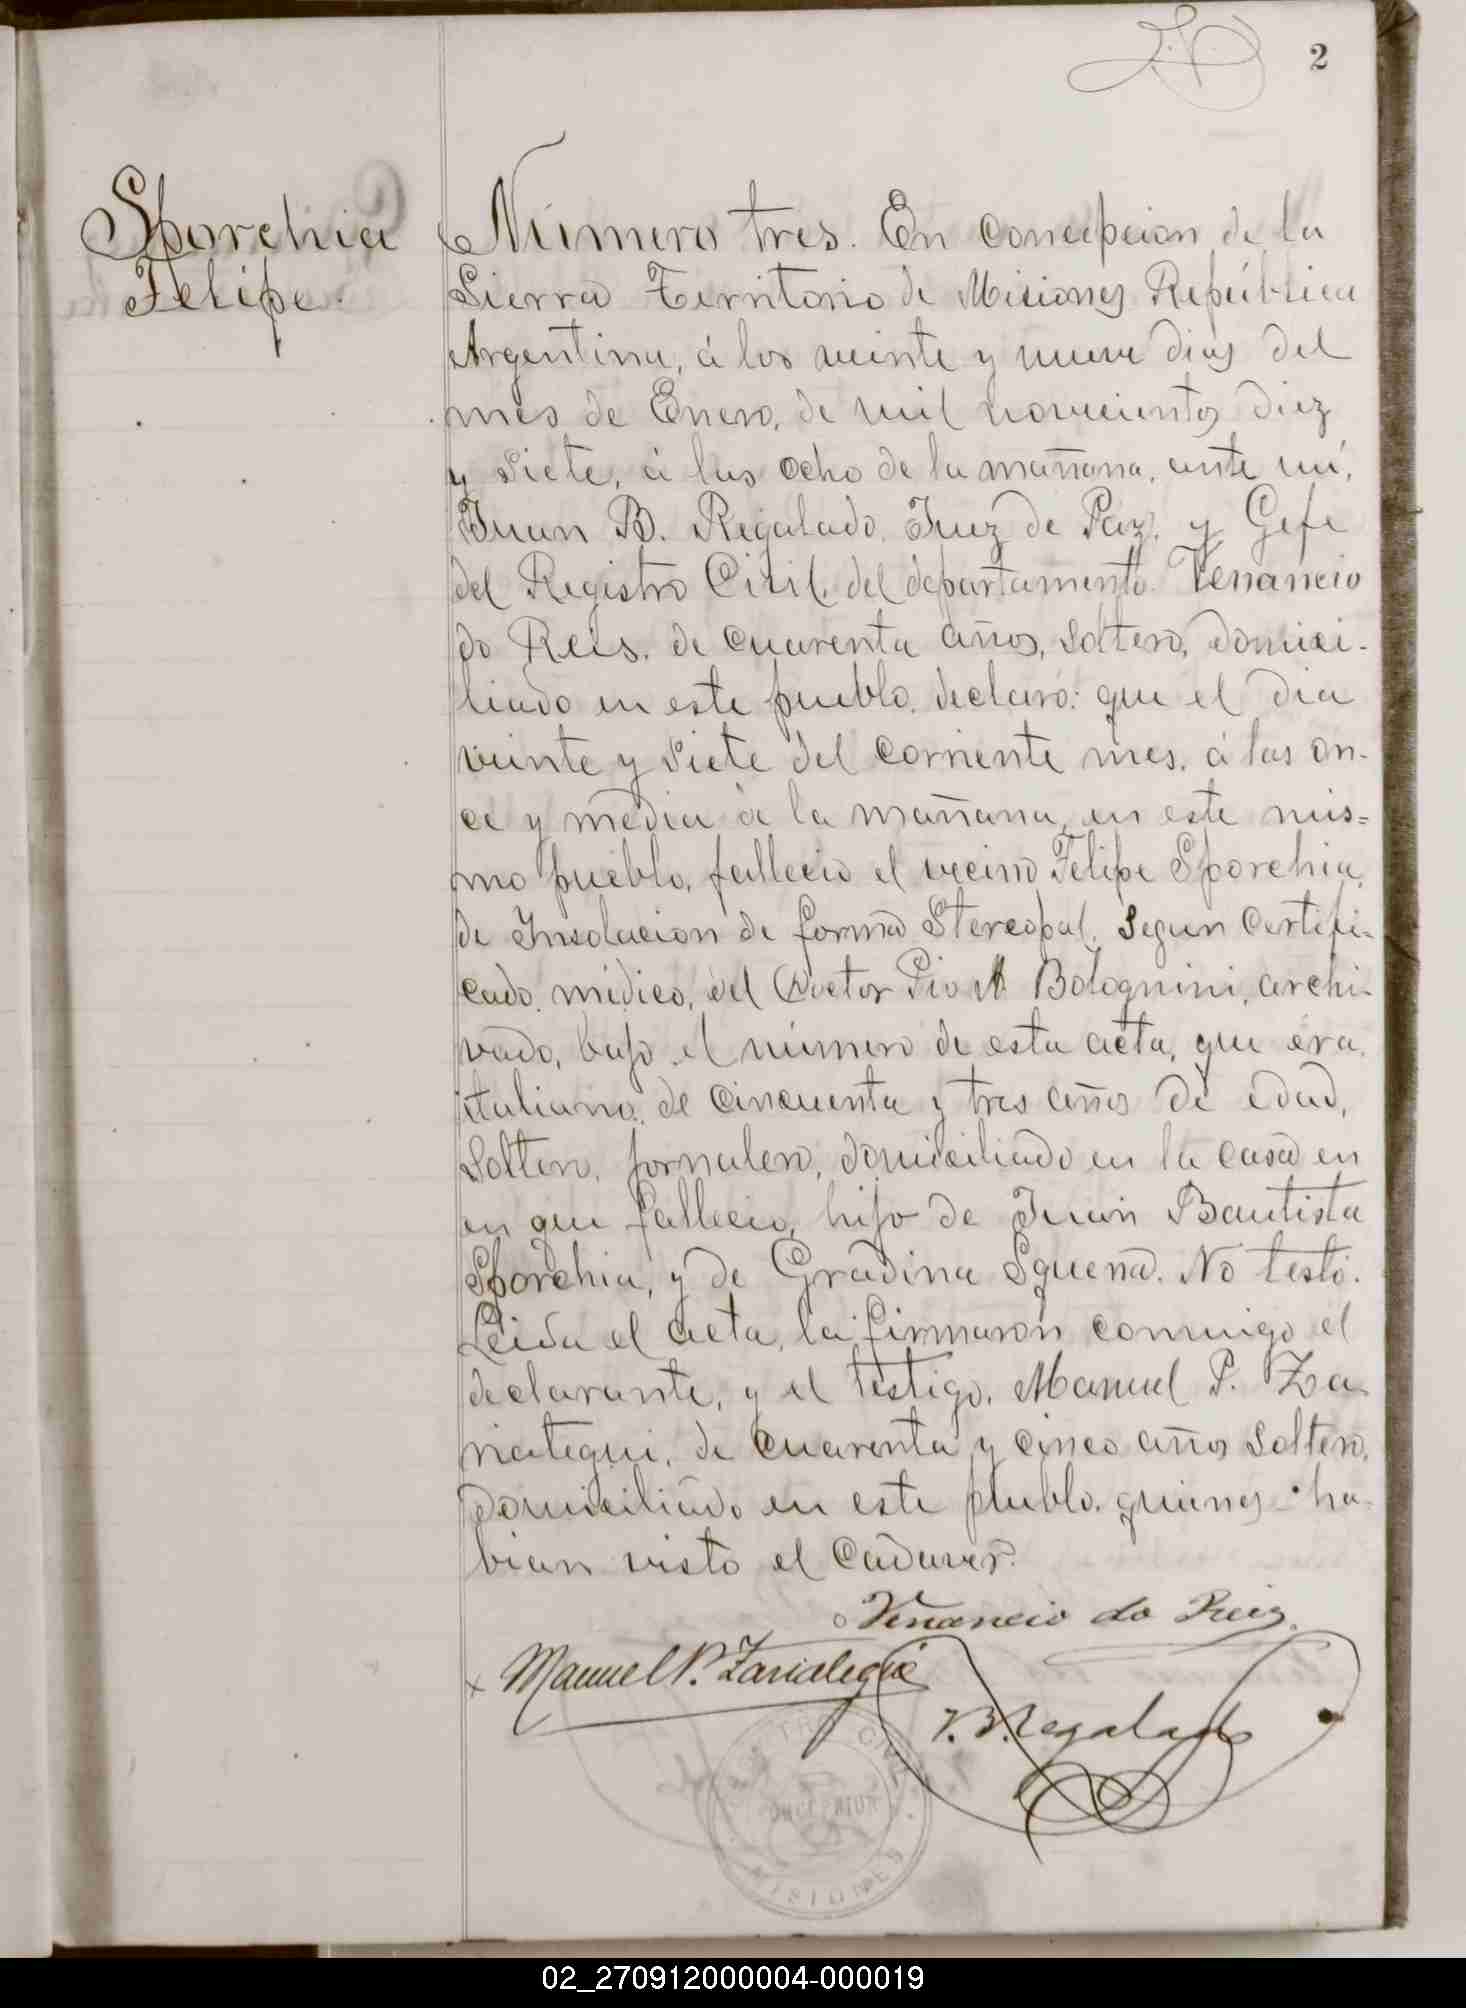 2
Sporchia
Felipe.
Número tres. En Concepcion de la
Sierra Territorio de Misiones República
Argentina, á los veinte y nueve dias del
mes de Enero, de mil novecientos diez
y siete, á las ocho de la mañana, ante mí,
Juan B. Regalado, Juez de Paz, y Gefe
del Registro Civil, del departamento. Venancio
do Reis, de cuarenta años, soltero, domici-
liado en este pueblo, declaró: que el dia
veinte y siete del corriente mes, á las on-
ce y media á la mañana, en este mis=
mo pueblo, fallecio el vecino Felipe Sporchia,
de Insolacion de forma Stercopal, Segun Certifi-
cado médico, del Doctor Pio A Bolognini, archi-
vado, bajo el número de esta acta, que éra
italiano, de cincuenta y tres años de edad,
soltero, jornalero, domiciliado en la casa en
en que fallecio, hijo de Juan Bautista
Sporchia, y de Gradina Squena. No testó.
Leida el acta, la firmaron conmigo el
declarante, y el testigo, Manuel P. Za-
riategui, de cuarenta y cinco años soltero,
domiciliado en este pueblo, quienes ha-
bian visto el cadaver.
Venancio do Reis
Manuel P. Zariategui
J. B. Regalado
REGISTRO CIVIL
CONCEPCION
MISIONES
02_270912000004-000019